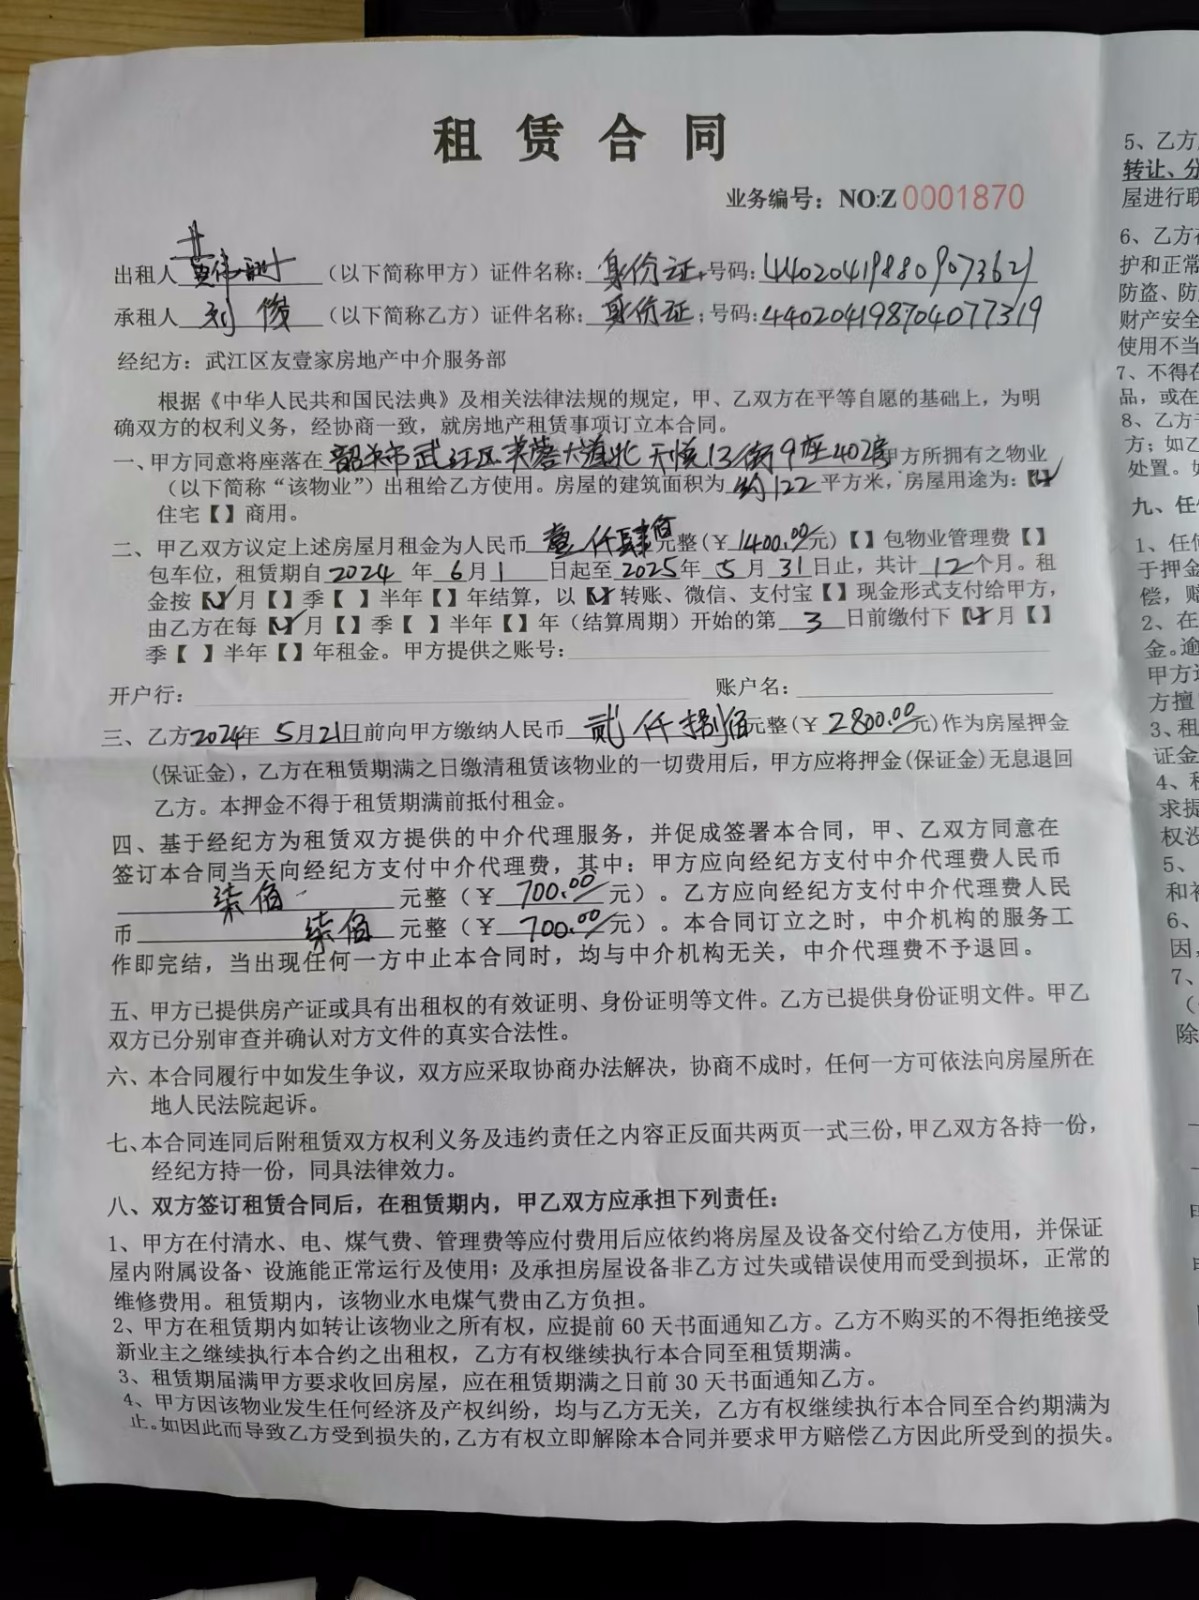 租赁合同
业务编号：NO:Z 0001870
出租人 黄伟 （以下简称甲方）证件名称：身份证，号码：440204198809073621
承租人 刘俊 （以下简称乙方）证件名称：身份证；号码：440204198704077319
经纪方：武江区友壹家房地产中介服务部
根据《中华人民共和国民法典》及相关法律法规的规定，甲、乙双方在平等自愿的基础上，为明
确双方的权利义务，经协商一致，就房地产租赁事项订立本合同。
一、甲方同意将座落在 韶关市武江区芙蓉大道北天悦13街9座402房 甲方所拥有之物业
（以下简称“该物业”）出租给乙方使用。房屋的建筑面积为 约122 平方米，房屋用途为：【✓】
住宅【】商用。
二、甲乙双方议定上述房屋月租金为人民币 壹仟肆佰 元整（￥1400.00元）【】包物业管理费【】
包车位，租赁期自2024 年 6月1 日起至2025年 5 月 31日止，共计 12 个月。租
金按【✓】月【】季【 】半年【】年结算，以【✓】转账、微信、支付宝【】现金形式支付给甲方，
由乙方在每【✓】月【】季【 】半年【】年（结算周期）开始的第 3 日前缴付下【✓】月【】
季【 】半年【】年租金。甲方提供之账号：
开户行： 账户名：
三、乙方2024年 5月21日前向甲方缴纳人民币 贰仟捌佰元整（￥2800.00元）作为房屋押金
(保证金)，乙方在租赁期满之日缴清租赁该物业的一切费用后，甲方应将押金(保证金)无息退回
乙方。本押金不得于租赁期满前抵付租金。
四、基于经纪方为租赁双方提供的中介代理服务，并促成签署本合同，甲、乙双方同意在
签订本合同当天向经纪方支付中介代理费，其中：甲方应向经纪方支付中介代理费人民币
柒佰 元整（￥ 700.00 元）。乙方应向经纪方支付中介代理费人民
币 柒佰 元整（￥ 700.00 元）。本合同订立之时，中介机构的服务工
作即完结，当出现任何一方中止本合同时，均与中介机构无关，中介代理费不予退回。
五、甲方已提供房产证或具有出租权的有效证明、身份证明等文件。乙方已提供身份证明文件。甲乙
双方已分别审查并确认对方文件的真实合法性。
六、本合同履行中如发生争议，双方应采取协商办法解决，协商不成时，任何一方可依法向房屋所在
地人民法院起诉。
七、本合同连同后附租赁双方权利义务及违约责任之内容正反面共两页一式三份，甲乙双方各持一份，
经纪方持一份，同具法律效力。
八、双方签订租赁合同后，在租赁期内，甲乙双方应承担下列责任：
1、甲方在付清水、电、煤气费、管理费等应付费用后应依约将房屋及设备交付给乙方使用，并保证
屋内附属设备、设施能正常运行及使用；及承担房屋设备非乙方过失或错误使用而受到损坏，正常的
维修费用。租赁期内，该物业水电煤气费由乙方负担。
2、甲方在租赁期内如转让该物业之所有权，应提前 60 天书面通知乙方。乙方不购买的不得拒绝接受
新业主之继续执行本合约之出租权，乙方有权继续执行本合同至租赁期满。
3、租赁期届满甲方要求收回房屋，应在租赁期满之日前 30 天书面通知乙方。
4、甲方因该物业发生任何经济及产权纠纷，均与乙方无关，乙方有权继续执行本合同至合约期满为
止。如因此而导致乙方受到损失的，乙方有权立即解除本合同并要求甲方赔偿乙方因此所受到的损失。
5、乙方
转让、分
屋进行联
6、乙方
护和正常
防盗、防
财产安全
使用不当
7、不得在
品，或在
8、乙方
方；如乙
处置。
九、任
1、任何
于押金
偿，
2、在
金。逾
甲方
方擅
3、租
证金
4、
求提
权没
5、
和
6、
因，
7、
（
除